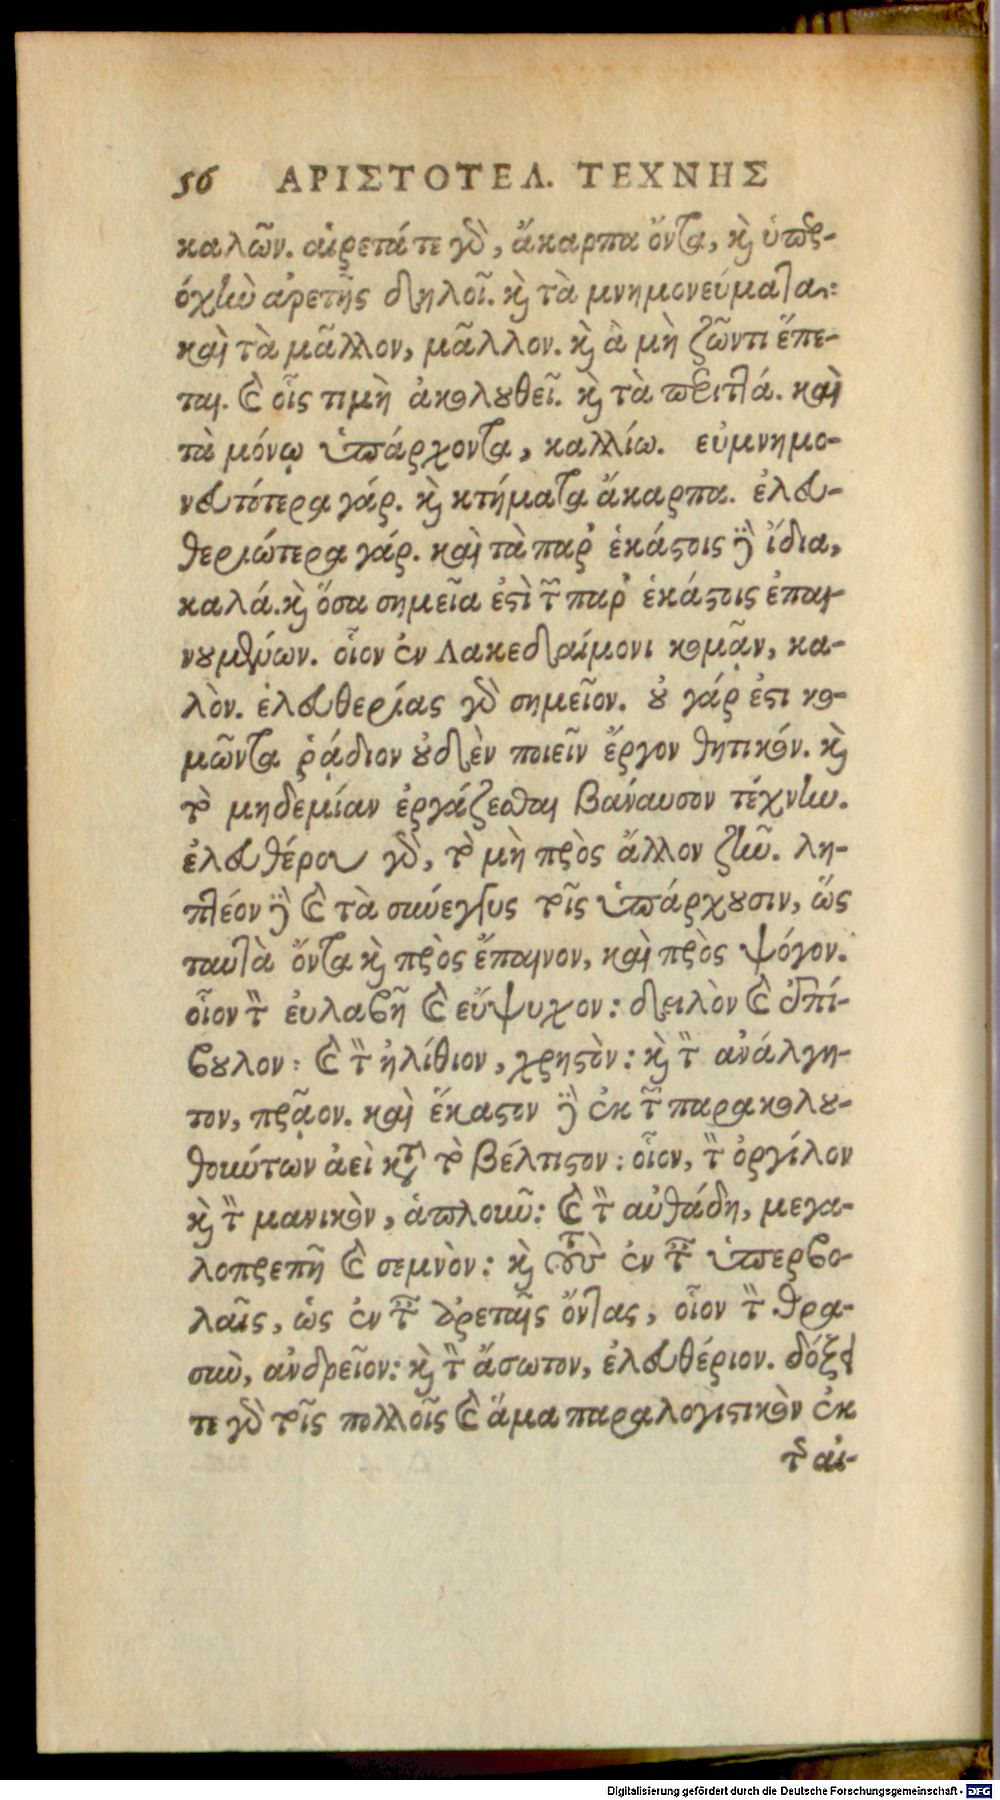 56 ΑΡΙΣΤΟΤΕΛ. ΤΕΧΝΗΣ
καλῶν. αἱρετά τε γὸ, ἄκαρπα ὄντα, καὶ ὑπερ-
όχὴν ἀρετῆς δηλοῖ. καὶ τὰ μνημονεύματα:
καὶ τὰ μᾶλλον, μᾶλλον. καὶ ἃ μὴ ζῶντι ἕπε-
ται. καὶ οἷς τιμὴ ἀκολουθεῖ. καὶ τὰ περιττά. καὶ
τὰ μόνῳ ὑπάρχοντα, καλλίω. εὐμνημο-
νευτότερα γάρ. καὶ κτήματα ἄκαρπα. ἐλευ-
θεριώτερα γάρ. καὶ τὰ παρ' ἑκάστοις δὲ ἴδια,
καλά. καὶ ὅσα σημεῖα ἐστὶ τῶν παρ' ἑκάστοις ἐπαι-
νουμένων. οἷον ἐν Λακεδαίμονι κομᾷν, κα-
λὸν. ἐλευθερίας γὰρ σημεῖον. οὐ γάρ ἐστι κο-
μῶντα ῥᾴδιον οὐδὲν ποιεῖν ἔργον θητικόν. καὶ
τὸ μηδεμίαν ἐργάζεσθαι βάναυσον τέχνην.
ἐλευθέρου γὰρ, τὸ μὴ πρὸς ἄλλον ζῆν. λη-
πτέον δὲ καὶ τὰ σύνεγγυς τοῖς ὑπάρχουσιν, ὥς
ταυτὰ ὄντα καὶ πρὸς ἔπαινον, καὶ πρὸς ψόγον.
οἷον τὸν εὐλαβῆ καὶ εὔψυχον: δειλὸν καὶ ἐπί-
βουλον: καὶ τὸν ἠλίθιον, χρηστὸν: καὶ τὸν ἀνάλγη-
τον, πρᾷον. καὶ ἕκαστον δὲ ἐκ τῶν παρακολου-
θούντων ἀεὶ κατὰ τὸ βέλτιστον: οἷον, τὸν ὀργίλον
καὶ τὸν μανικὸν, ἁπλοῦν: καὶ τὸν αὐθάδη, μεγα-
λοπρεπῆ καὶ σεμνὸν: καὶ τοὺς ἐν ταῖς ὑπερβο-
λαῖς, ὡς ἐν ταῖς ἀρεταῖς ὄντας, οἷον τὸν θρα-
σὺν, ἀνδρεῖον: καὶ τὸν ἄσωτον, ἐλευθέριον. δόξει
τε γὰρ τοῖς πολλοῖς καὶ ἅμα παραλογιστικὸν ἐκ
τῆς αἰ-
Digitalisierung gefördert durch die Deutsche Forschungsgemeinschaft - DFG